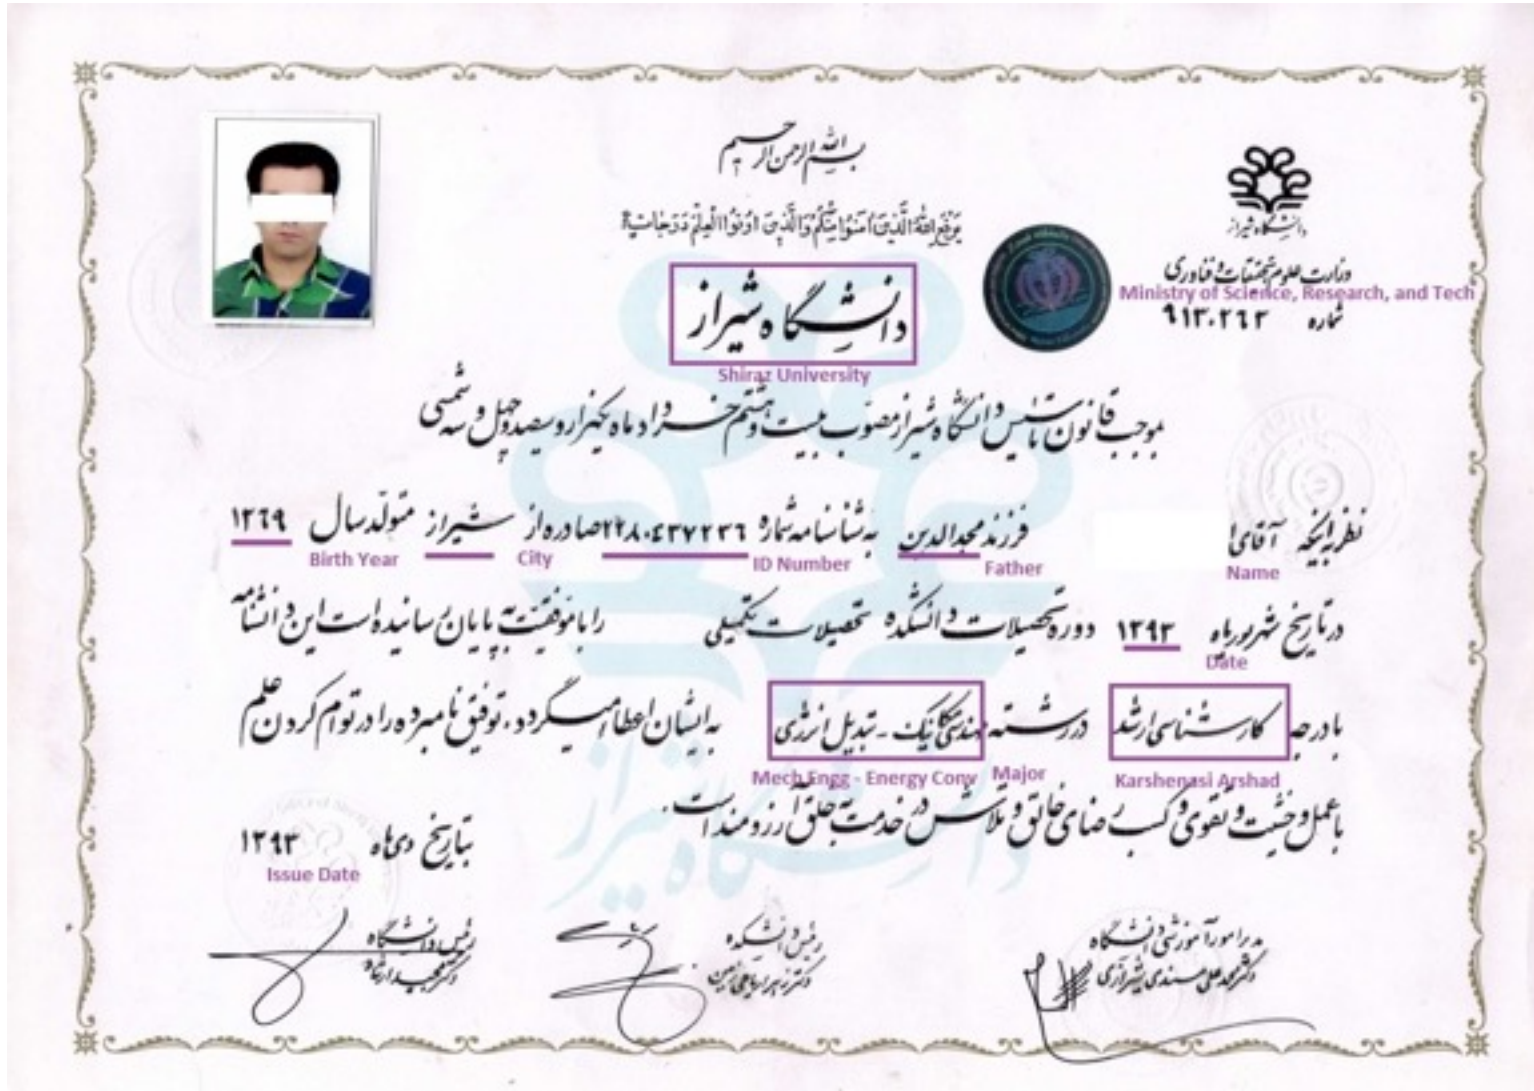 بسم الله الرحمن الرحیم
یرفع الله الذین آمنوا منکم والذین اوتوا العلم درجات
دانشگاه شیراز
وزارت علوم تحقیقات و فناوری
Ministry of Science, Research, and Tech
شماره ۹۱۳۰۲۶۳
دانشگاه شیراز
Shiraz University
بموجب قانون تاسیس دانشگاه شیراز مصوب بیست و هشتم خرداد ماه یکهزار و سیصد و چهل و سه شمسی
نظر باینکه آقای فرزند مجدالدین به شناسنامه شماره ۲۲۸۰۴۳۷۲۳۶ صادره از شیراز متولد سال ۱۳۶۹
Name Father ID Number City Birth Year
در تاریخ شهریورماه ۱۳۹۳ دوره تحصیلات دانشکده تحصیلات تکمیلی را با موفقیت به پایان رسانیده است این دانشنامه
Date
با درجه کارشناسی ارشد در رشته مهندسی مکانیک - تبدیل انرژی به ایشان اعطا میگردد، توفیق نامبرده را در توام کردن علم
Karshenasi Arshad Major Mech Engg - Energy Conv
با عمل و خشیت و تقوی و کسب رضای خالق و تلاش در خدمت به خلق آرزومند است.
بتاریخ دی ماه ۱۳۹۳
Issue Date
مدیر امور آموزشی دانشگاه
رئیس دانشکده
رئیس دانشگاه
دکتر مجید ارشاد
دانشگاه شیراز